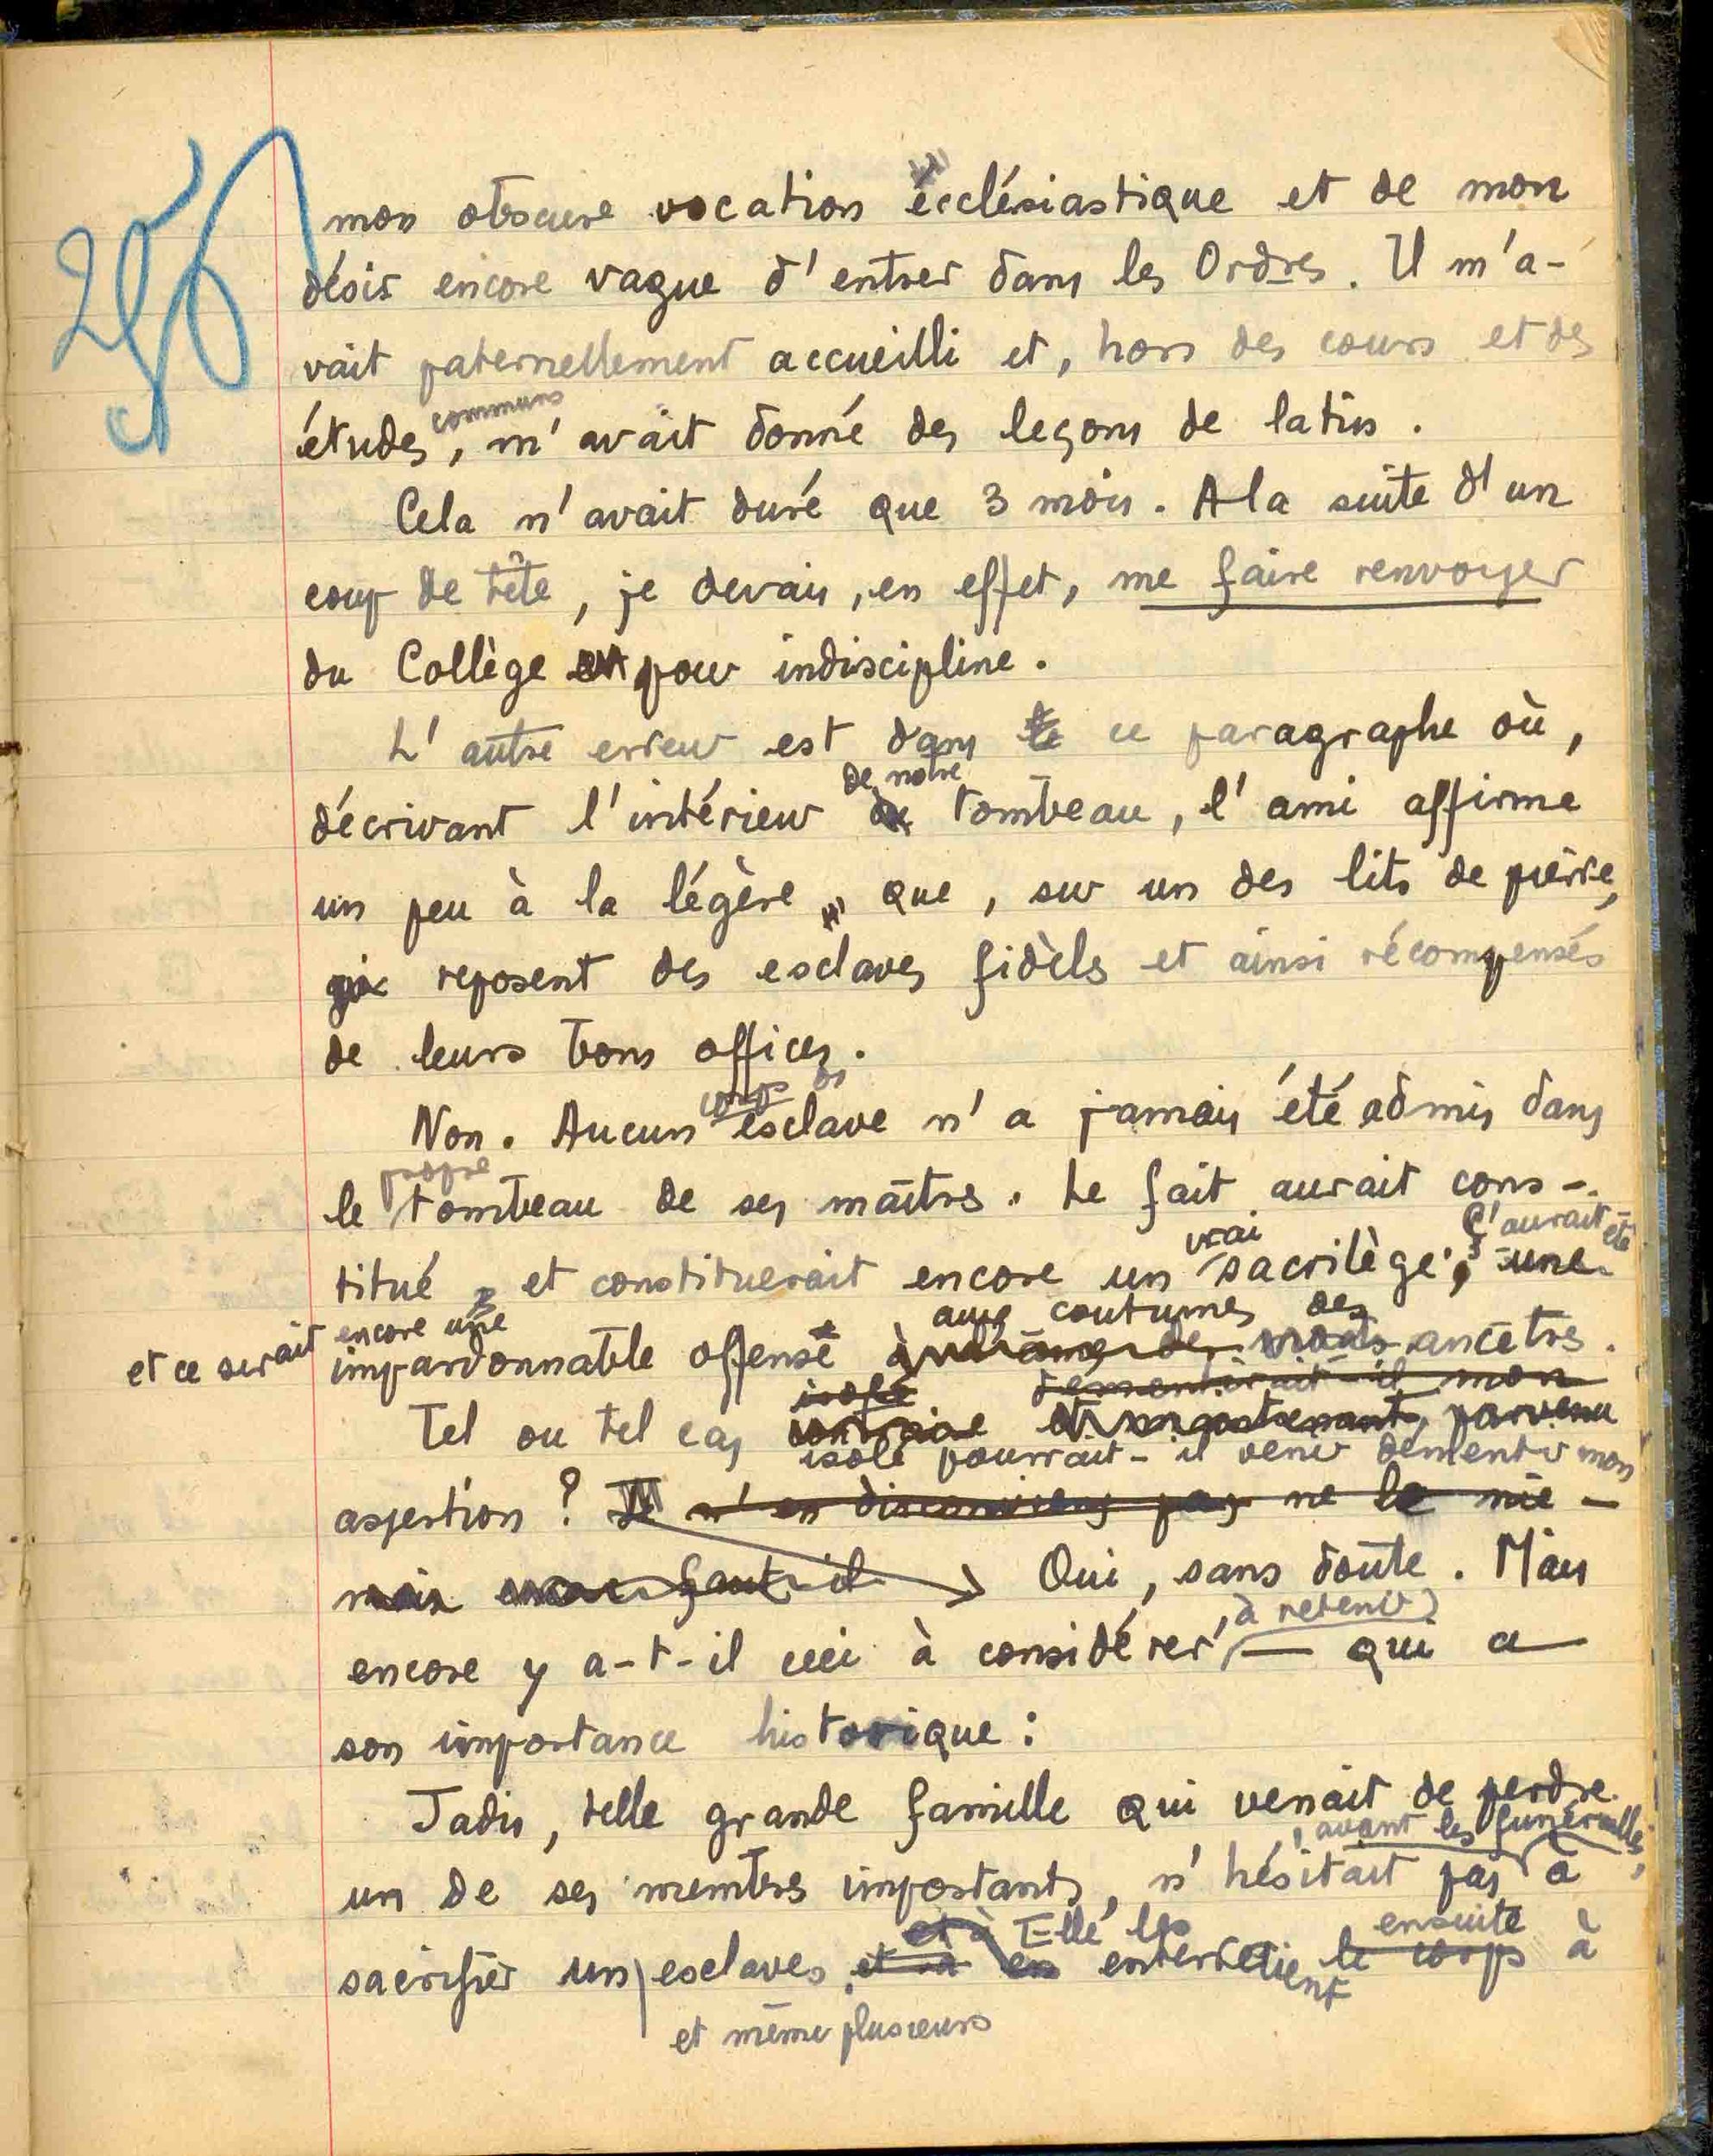 256
mon obscure vocation ecclésiastique et de mon
désir encore vague d'entrer dans les Ordres. Il m'a-
vait paternellement accueilli et, hors des cours et des
études communes, m'avait donné des leçons de latin.
Cela n'avait duré que 3 mois. A la suite d'un
coup de tête, je devais, en effet, me faire renvoyer
du Collège pour indiscipline.
L'autre erreur est dans le ce paragraphe où,
de notre
décrivant l'intérieur du tombeau, l'ami affirme
un peu à la légère que, sur un des lits de pierre,
reposent des esclaves fidèls et ainsi récompensés
de leurs bons offices.
corps d'
Non. Aucun esclave n'a jamais été admis dans
propre
le tombeau de ses maîtres. Le fait aurait cons-
vrai ç'aurait été
titué et constituerait encore un sacrilège, une
encore une aux coutumes des
et ce serait impardonnable offense à ancêtres.
isolé démentirait-il mon
Tel ou tel cas contraire parvenu
isolé pourrait-il venir démentir mon
assertion ? Je n'en disconviens pas ne le nie -
mais encore faut-il Oui, sans doute. Mais
, à retenir
encore y a-t-il ceci à considérer, — qui a
son importance historique :
Jadis, telle grande famille qui venait de perdre
, avant les funérailles,
un de ses membres importants, n'hésitait pas à
et à Elle les ensuite
sacrifier un esclaves, et à en entretient le corps à
et même plusieurs